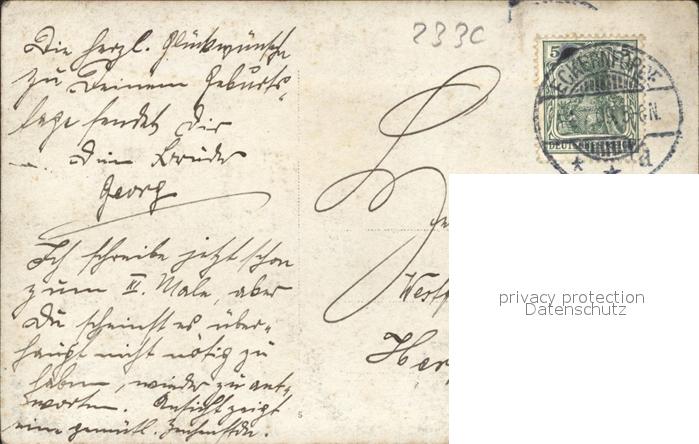 2330
Die herzl. Glückwünsche
zu Deinem Geburts-
tage sendet Dir
Dein Bruder
Georg
Ich schreibe jetzt schon
zum III. Male, aber
Du scheinst es über-
haupt nicht nötig zu
haben, wieder zu ant-
worten. Ansicht zeigt
eine gemütl.
5
ECKERNFÖRDE
N.
* * a
Westf
Her
privacy protection
Datenschutz
5